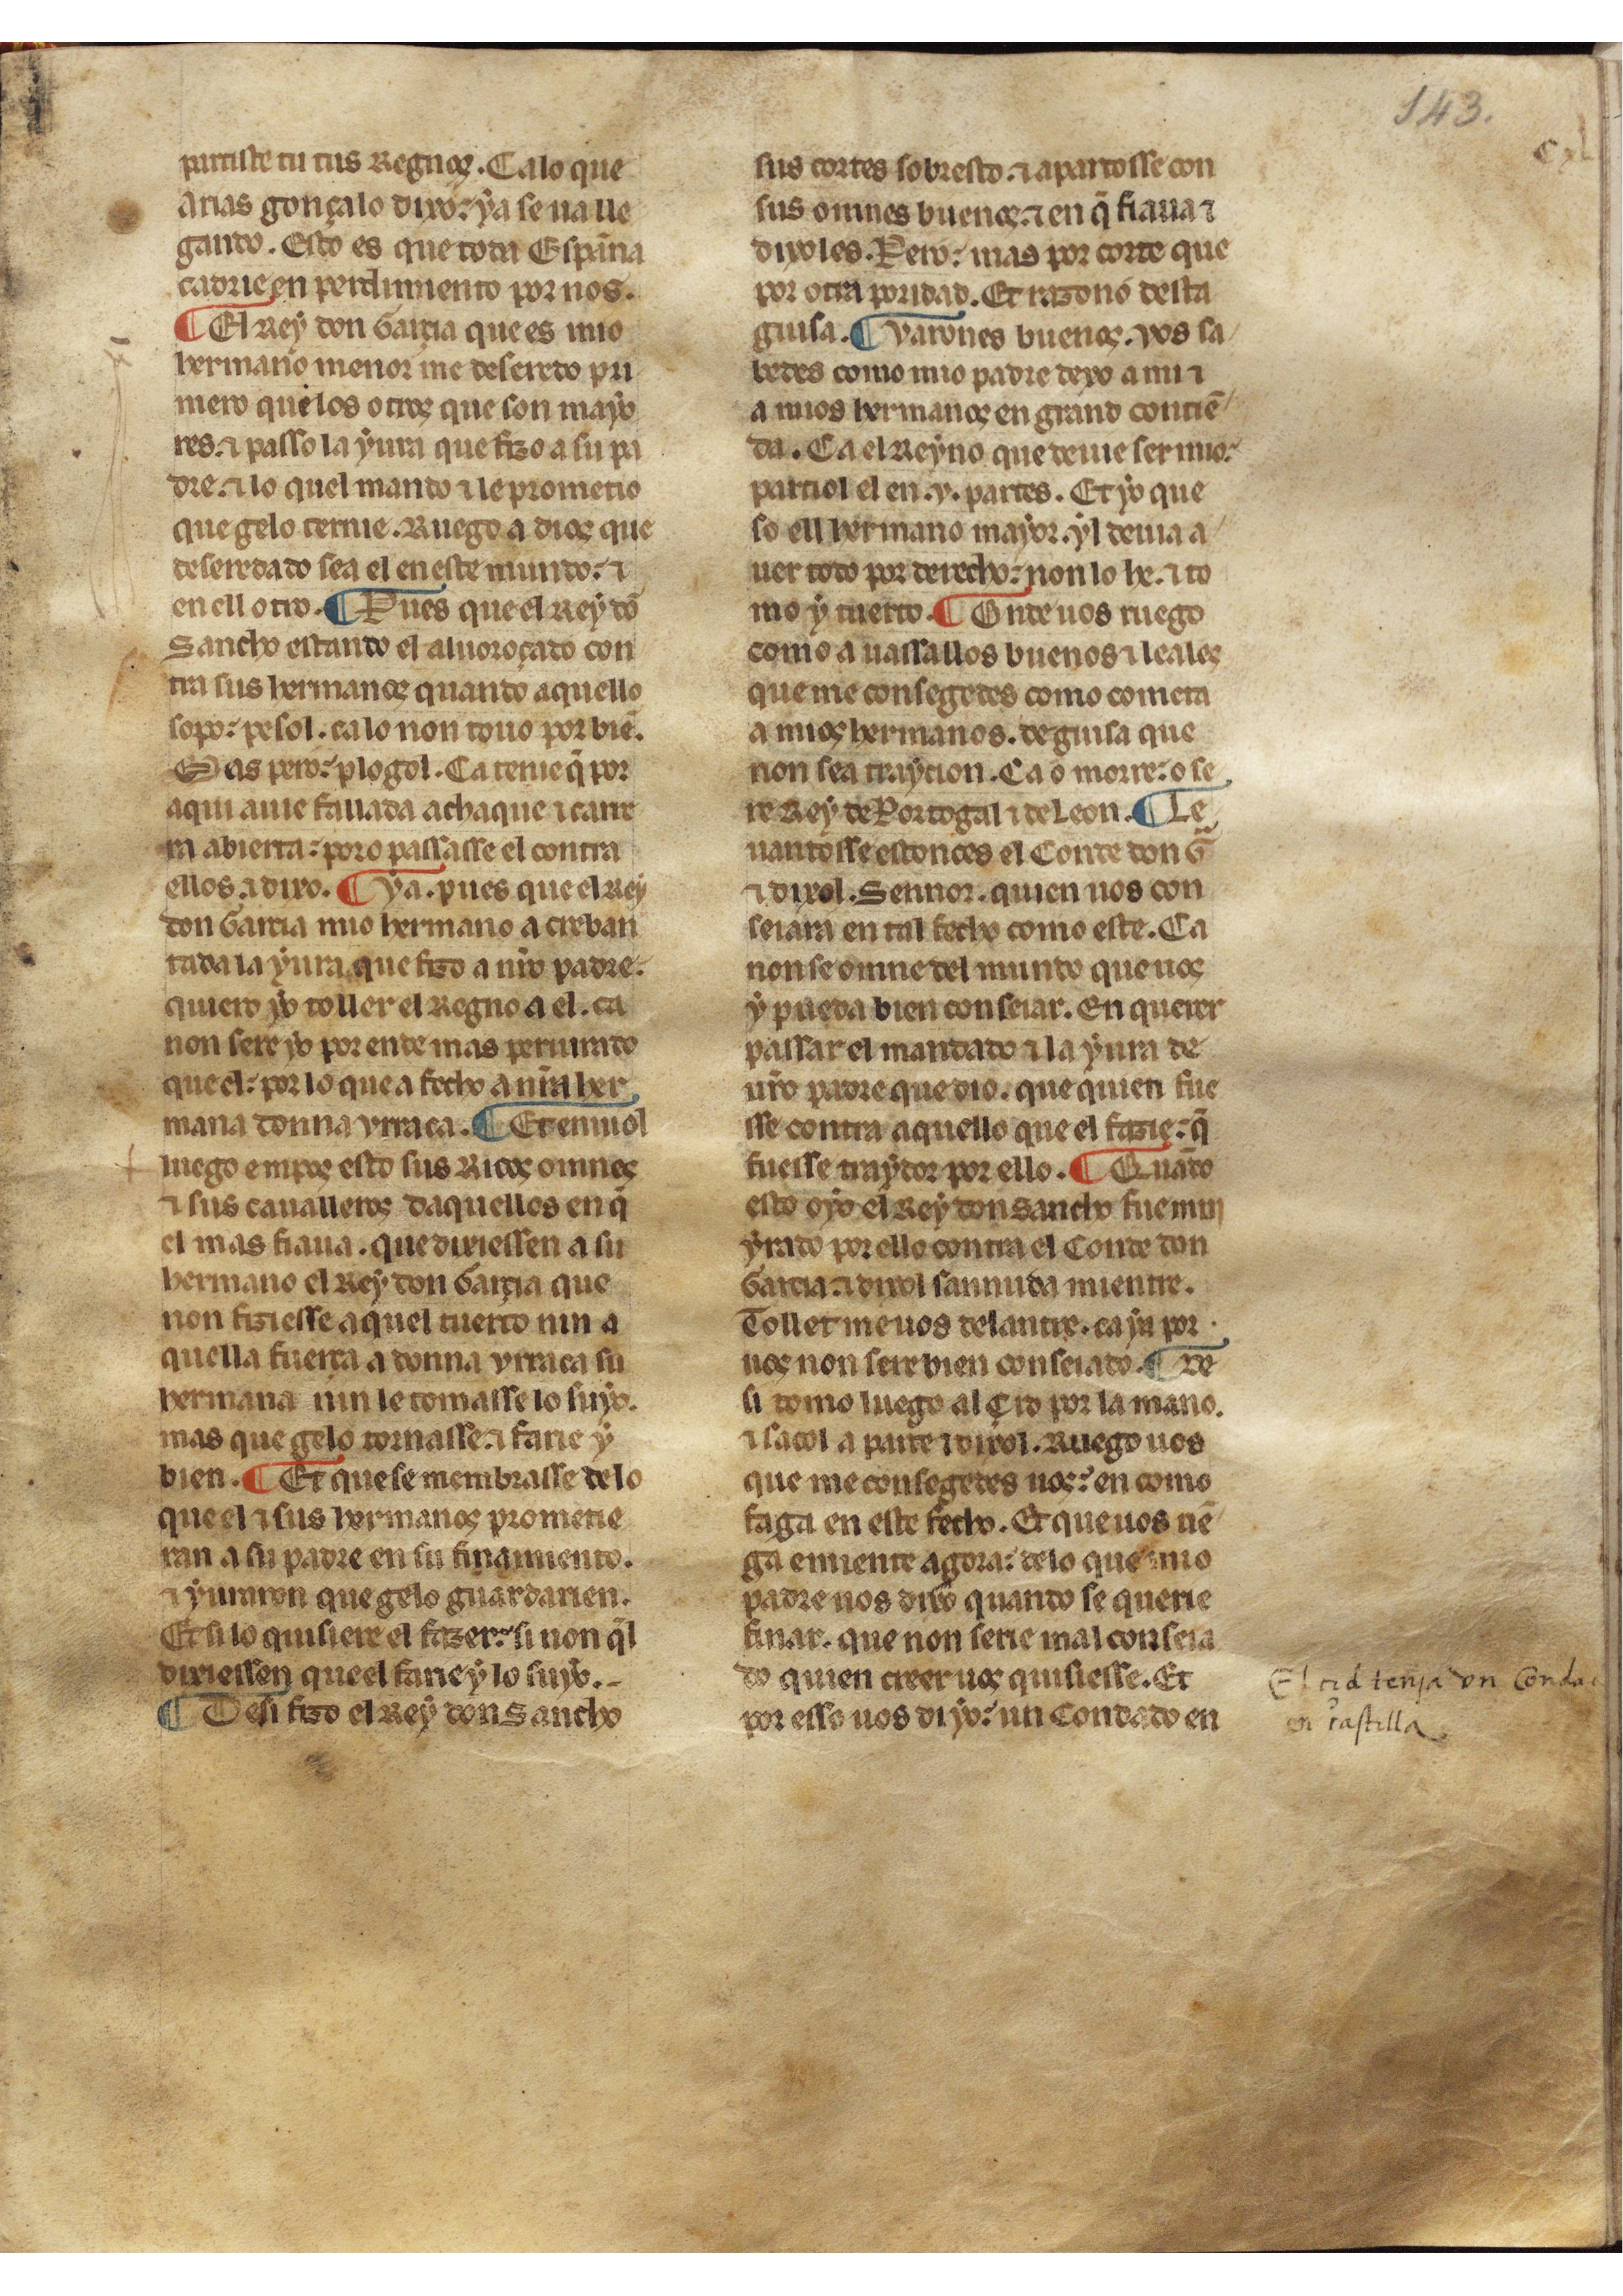 143.
cxl
partiste tu tus Regnos. Ca lo que
arias gonçalo dixo: ya se ua lle
gando. Esto es que toda Espãna
cadrie en perdimiento por nos.
¶ El Rey don Garçia que es mio
hermano menor me deseredo pri
mero que los otros que son mayo
res. ⁊ passo la yura que fizo a su pa
dre. ⁊ lo quel mando ⁊ le prometio
que gelo ternie. Ruego a dios que
deseredado sea el en este mundo: ⁊
en ell otro. ¶ Pues que el Rey dõ
Sancho estando el aluoroçado con
tra sus hermanos quando aquello
sopo: pesol. ca lo non touo por biẽ.
Mas pero: plogol. Ca tenie q̃ por
aqui auie fallada achaque ⁊ carre
ra abierta: poro passasse el contra
ellos. ⁊ dixo. ¶ Ya. pues que el Rey
don Garcia mio hermano a creban
tada la yura que fizo a nr̃o padre:
quiero yo toller el Regno a el. ca
non sere yo por ende mas periurado
que el: por lo que a fecho a nr̃a her
mana donna vrraca. ¶ Et enuiol
luego empos esto sus Ricos omnes
⁊ sus caualleros daquellos en q̃
el mas fiaua. que dixiessen a su
hermano el Rey don Garçia que
non fiziesse aquel tuerto nin a
quella fuerça a donna vrraca su
hermana nin le tomasse lo suyo.
mas que gelo tornasse. ⁊ farie y
bien. ¶ Et que se membrasse de lo
que el ⁊ sus hermanos prometie
ran a su padre en su finamiento.
⁊ yuraron que gelo guardarien.
Et si lo quisiere el fazer: si non q̃l
dixiessen que el farie y lo suyo.
¶ Desi fizo el Rey don Sancho
sus cortes sobresto. ⁊ apartosse con
sus omnes buenos. ⁊ en q̃ fiaua ⁊
dixoles. Pero: mas por corte que
por otra poridad. Et razono desta
guisa. ¶ Varones buenos. vos sa
bedes como mio padre dexo a mi ⁊
a mios hermanos en grand contiẽ
da. Ca el Reyno que deuie ser mio:
partiol el en .v. partes. Et yo que
so ell hermano mayor. yl deuia a
uer todo por derecho: non lo he. ⁊ to
mo y tuerto. ¶ Onde uos ruego
como a uassallos buenos ⁊ leales
que me consegedes como cometa
a mios hermanos. de guisa que
non sea traycion. Ca o morre: o se
re Rey de Portogal ⁊ de Leon. ¶ Le
uantosse estonces el Conde don G̃
⁊ dixol. Sennor. quien uos con
seiara en tal fecho como este. Ca
non se omne del mundo que uos
y pueda bien conseiar. En querer
passar el mandado ⁊ la yura de
ur̃o padre que dio. que quien fue
sse contra aquello que el fazie: q̃
fuesse traydor por ello. ¶ Quãdo
esto oyo el Rey don Sancho fue muy
yrado por ello contra el Conde don
Garcia. ⁊ dixol sannuda mientre.
Tollet me uos delantre. ca ya por
uos non sere bien conseiado. ¶ De
si tomo luego al Çid por la mano.
⁊ sacol a parte ⁊ dixol. Ruego uos
que me consegedes uos: en como
faga en este fecho. Et que uos uẽ
ga emiente agora: de lo que mio
padre uos dixo quando se querie
finar. que non serie mal conseia
do quien creer uos quisiesse. Et
por esso uos di yo: un Condado en
El cid tenja vn Conda
en castilla